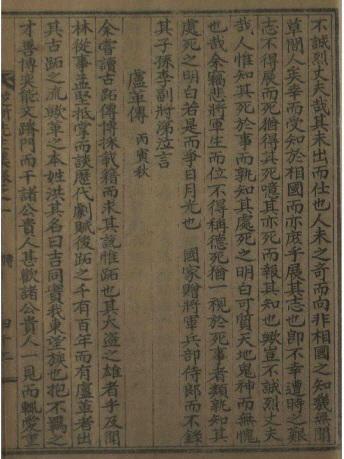 不誠烈丈夫哉其未出而仕也人未之奇而向非相國之知幾無聞
草間人矣幸而受知於相國而亦庶乎展其志也卽不幸遭時之艱
志不得展而死猶得其死噫其亦死而報其知也歟豈不誠烈丈夫
哉人惟知其死於事而孰知其處死之明白可質天地鬼神而無愧
也哉余竊悲將軍生而位不得稱德死猶一視於死事者類孰知其
處死之明白若是而爭日月光也 國家贈將軍兵部侍郎而不錄
其子孫李副將涕泣言
盧革傳 丙寅秋
余嘗讀古跖傳博採載籍而求其說惟跖也其大盜之雄者乎及聞
林從事孟堅抵掌而談歷代劇賊後跖之千有百年而有盧革者出
其古跖之流歟革之本姓洪其名曰吉同實我東望族也抱不羈之
才善博奕能文躋門而干諸公貴人甚歡諸公貴人一見而輒愛重